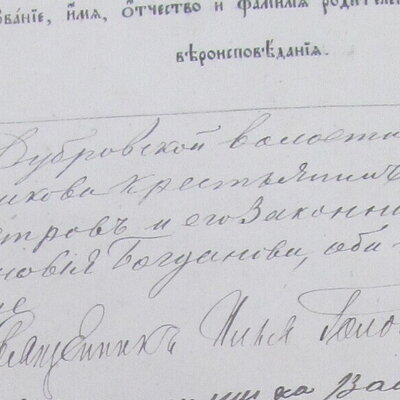 ваніе, имя, отчество и фамилія родителе
вѣроисповѣданія.
Дубровской волости
кова крестьянинъ
етровъ и его законн
новія Богданова, оби
Священникъ Илья